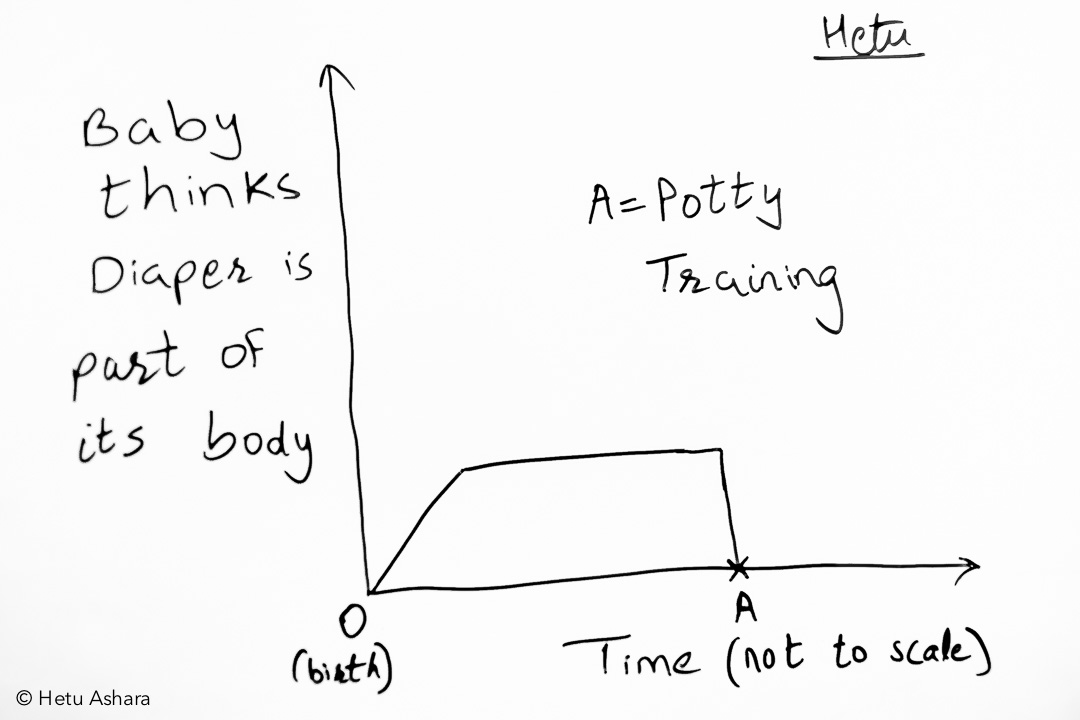 Hetu
Baby
thinks
Diaper is
part of
its body
A = Potty
Training
O
(birth)
A
Time (not to scale)
© Hetu Ashara